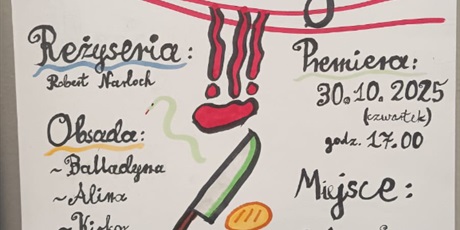 Reżyseria:
Robert Narloch
Obsada:
~Balladyna
~Alina
Premiera:
30.10.2025
(czwartek)
godz. 17.00
Miejsce: